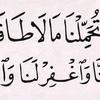 تُحَمِّلْنَا مَا لَا طَاقَ
نَّا وَاغْفِرْ لَنَا وَا